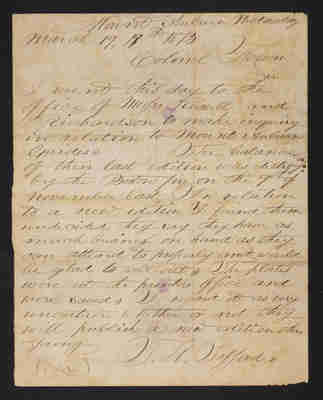 Mount Auburn Wednesday
March 19, 1873
Colonel
Sir
I went this day to the
office of and
Richardson to make inquiry
in relation to Mount Auburn
Guides. The balance
of their last edition was destroyed
by the Boston fire on the 9th of
November last. In relation
to a new edition I found them
undecided they say they have as
much business on hand as they
can attend to properly and would
be glad to sell out. The plates
were at the printers office and
were saved. It is
uncertain whether or not they
will publish a new edition this
Spring.